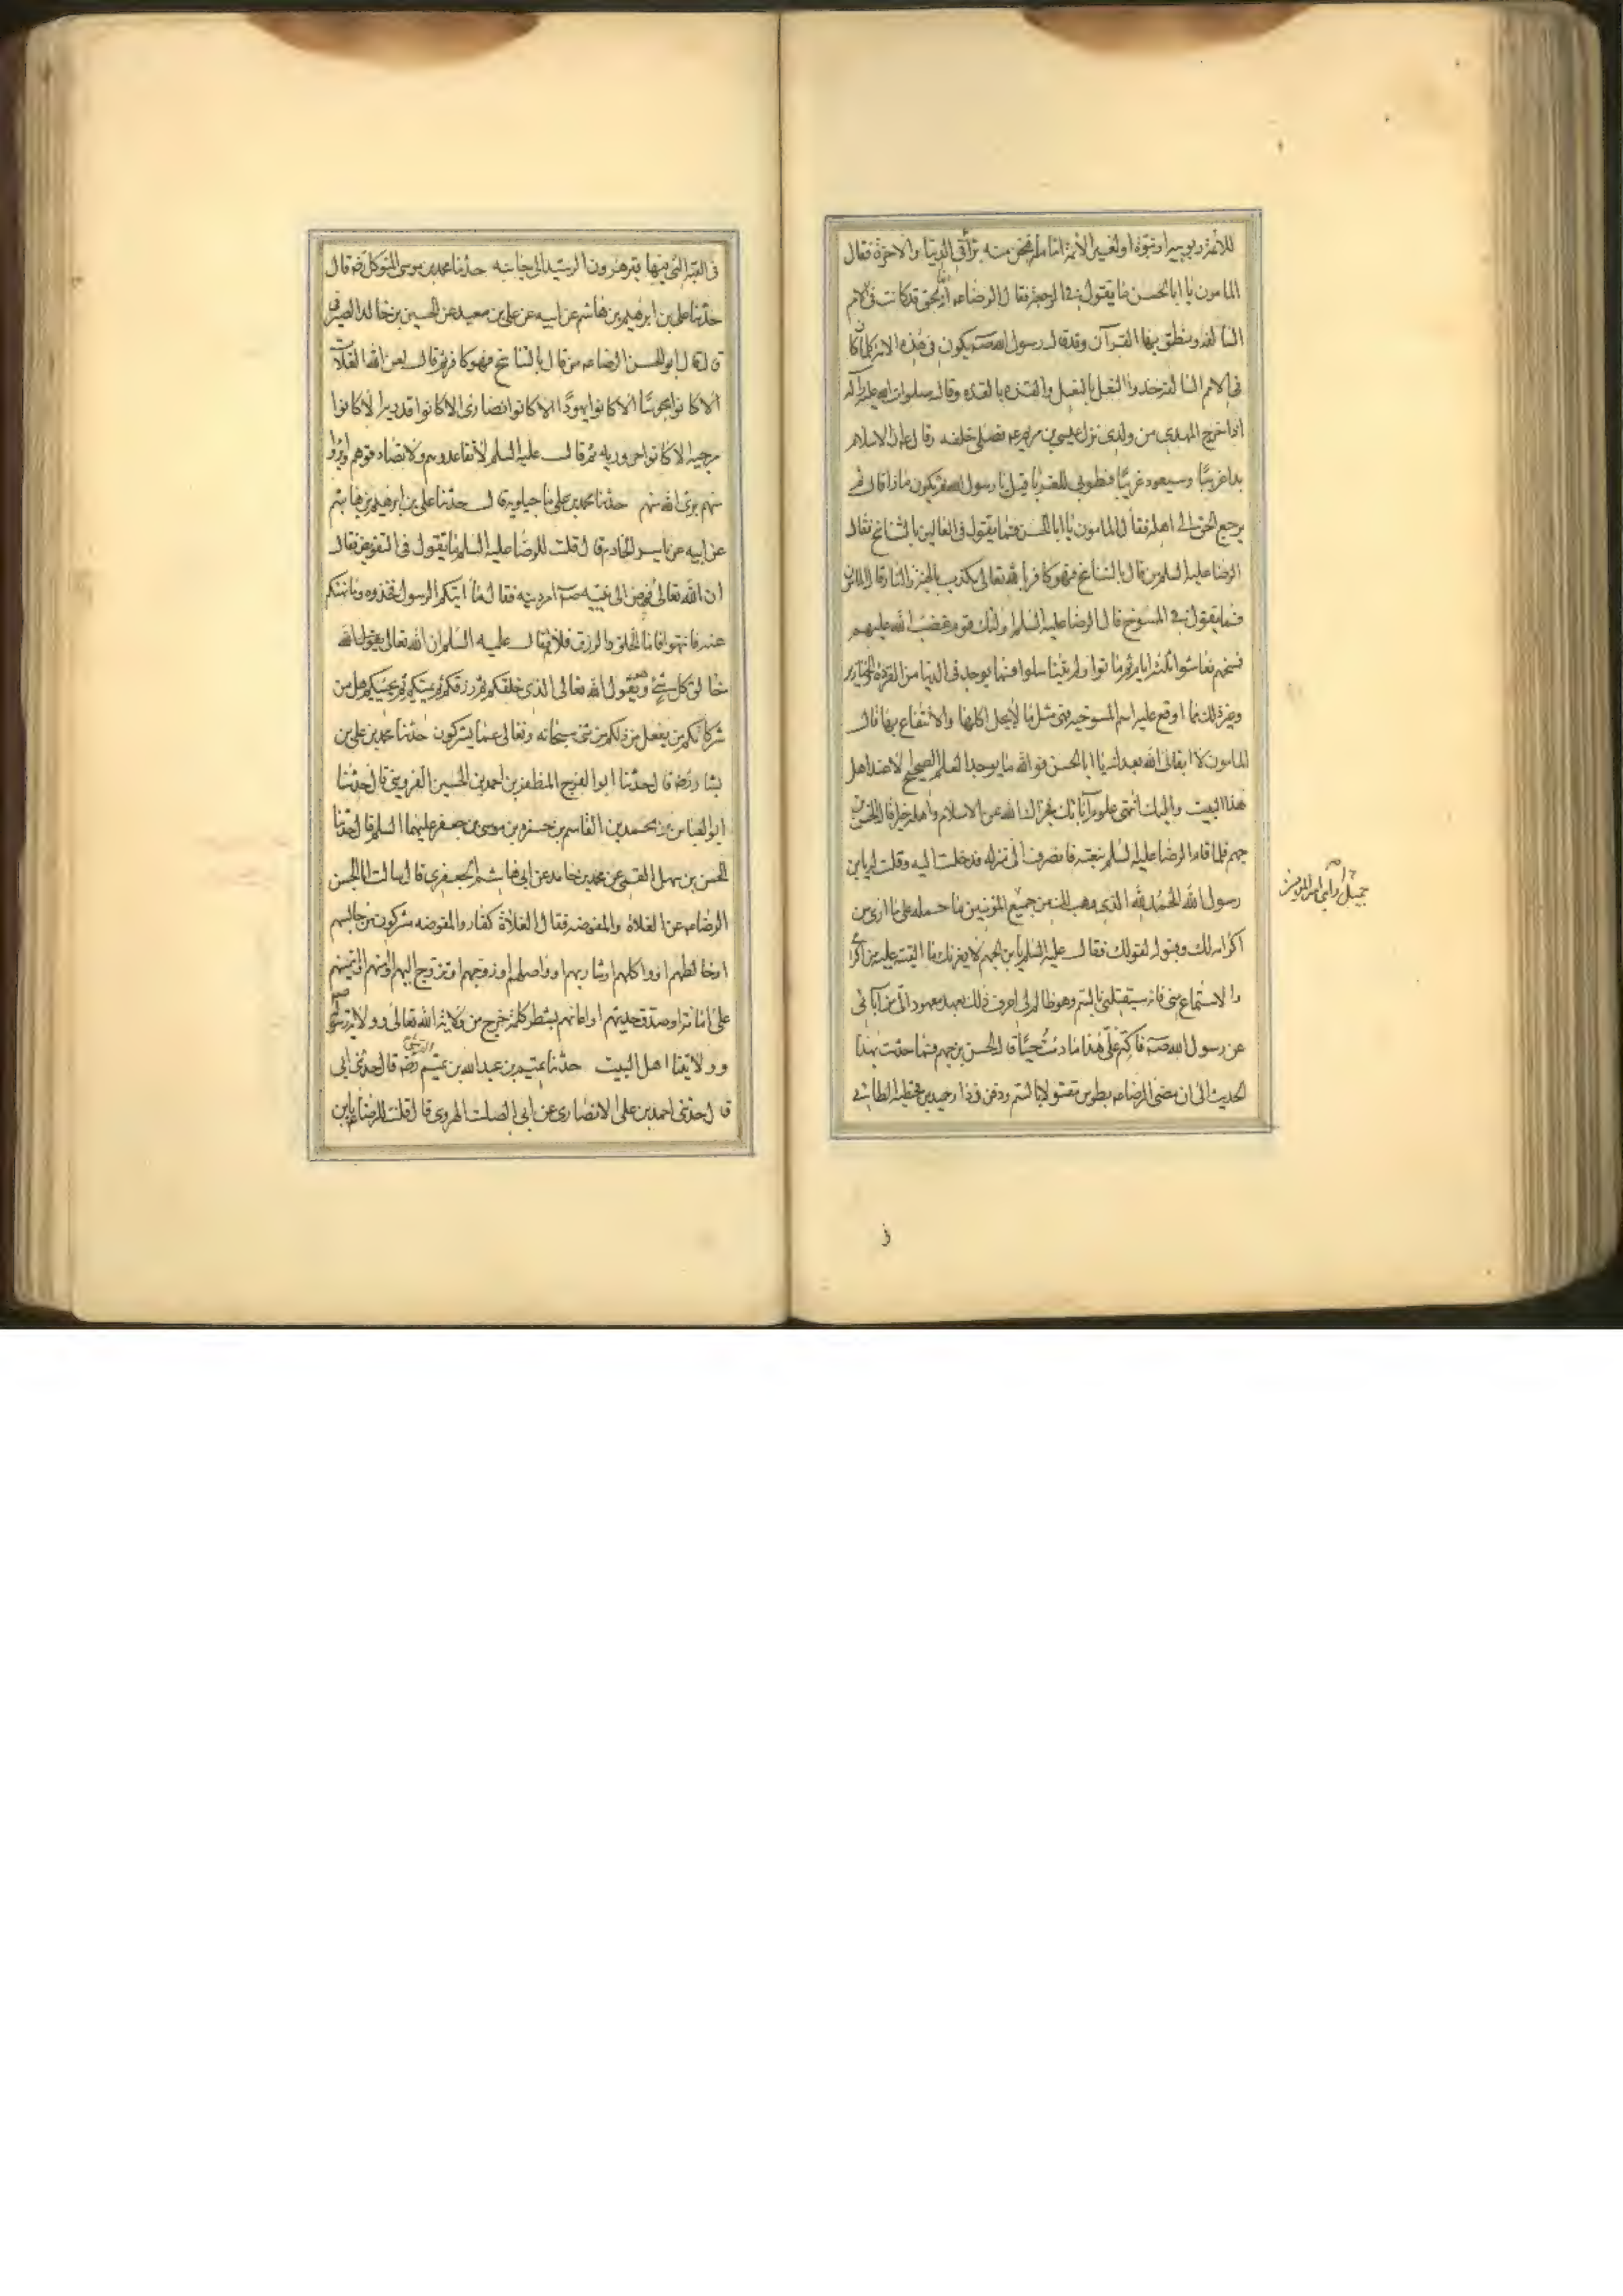 للأئمة ربوبية او نبوة او لغير الأئمة امامة فنحن منه برآء في الدنيا والاخرة فقال
المامون يا ابا الحسن فما يقول في الرجعة فقال الرضاء انها لحق قد كانت في الامم
السالفة ونطق بها القرآن وقد قال رسول الله صـ يكون في هذه الامة كلما كان
في الامم السالفة حذو النعل بالنعل والقذة بالقذة وقال صلوات الله عليه وآله
اذا خرج المهدي من ولدي نزل عيسى بن مريم عـ فصلى خلفه وقال ان الاسلام
بدا غريبا وسيعود غريبا فطوبى للغربا قيل يا رسول الله ثم يكون ماذا قال ثم
يرجع الحق الى اهله فقال المامون يا ابا الحسن فما يقول في القائلين بالتناسخ فقال
الرضا عليه السلم من قال بالتناسخ فهو كافر بالله تعالى يكذب بالجنة والنار قال المامون
فما يقول في المسوخ قال الرضا عليه السلم اولئك قوم غضب الله عليهم
فمسخهم فعاشوا ثلثة ايام ثم ماتوا ولم يتناسلوا فما يوجد في الدنيا من القردة والخنازير
وغير ذلك مما اوقع عليه اسم المسوخية فهى مثل ما لا يحل اكلها والانتفاع بها قال
المامون لا ابقانى الله بعدك يا ابا الحسن فو الله ما يوجد العلم الصحيح الا عند اهل
هذا البيت واليك انتهى علوم آبائك فجزاك الله عن الاسلام واهله خيرا قال الحسن بن
جهم فلما قام الرضا عليه السلم تبعته فانصرف الى منزله فدخلت اليه وقلت له يا بن
رسول الله الحمد لله الذى وهب لك من جميع المؤمنين ما حمله على ما ارى من
اكرامه لك وقبوله لقولك فقال عليه السلم يا بن الجهم لا يغرنك ما الفيته عليه من اكرامى
والاستماع منى فانه سيقتلنى بالسم وهو ظالم لى اعرف ذلك بعهد معهود الى من آبائى
عن رسول الله صـ فاكتم على هذا ما دمت حيا قال الحسن بن جهم فما حدثت بهذا
الحديث الى ان مضى الرضاء بطوس مقتولا بالسم ودفن فى دار حميد بن قحطبة الطائى
فى
فى القبة التى فيها قبر هرون الرشيد الى جانبه حدثنا محمد بن موسى المتوكل رضه قال
حدثنا على بن ابرهيم بن هاشم عن ابيه عن على بن معبد عن الحسين بن خالد الصيرفى
قال قال ابو الحسن الرضاء من قال بالتناسخ فهو كافر ثم قال لعن الله الغلاة
الا كانوا مجوسا الا كانوا يهودا الا كانوا نصارى الا كانوا قدرية الا كانوا
مرجية الا كانوا حرورية ثم قال عليه السلم لا تقاعدوهم ولا تصادقوهم وابرؤا
منهم برى الله منهم حدثنا محمد بن على ماجيلويه قال حدثنا على بن ابرهيم بن هاشم
عن ابيه عن ياسر الخادم قال قلت للرضا عليه السلم ما تقول فى التفويض فقال
ان الله تعالى فوض الى نبيه صـ امر دينه فقال ما ايتكم الرسول فخذوه وما نهيكم
عنه فانتهوا فاما الخلق والرزق فلا ثم قال عليه السلم ان الله تعالى يقول الله
خالق كل شئ ويقول الله تعالى الذى خلقكم ثم رزقكم ثم يميتكم ثم يحييكم هل من
شركائكم من يفعل من ذلكم من شئ سبحانه وتعالى عما يشركون حدثنا محمد بن على بن
بشار رضه قال حدثنا ابو الفرج المظفر بن احمد بن الحسين القزوينى قال حدثنا
ابو العباس بن محمد بن القاسم بن حمزه بن موسى بن جعفر عليهما السلم قال حدثنا
الحسن بن سهل القمى عن محمد بن حامد عن ابى هاشم الجعفرى قال سالت ابا الحسن
الرضاء عن الغلاة والمفوضه فقال الغلاة كفار والمفوضه مشركون من جالسهم
او خالطهم او واكلهم او شاربهم او واصلهم او زوجهم او تزوج اليهم او امنهم او ائتمنهم
على امانة او صدق حديثهم او اعانهم بشطر كلمة خرج من ولاية الله تعالى وولاية رسوله
وولايتنا اهل البيت حدثنا تميم بن عبد الله بن تميم القرشى رضه قال حدثنى ابى
قال حدثنى احمد بن على الانصارى عن ابى الصلت الهروى قال قلت للرضاء يا بن